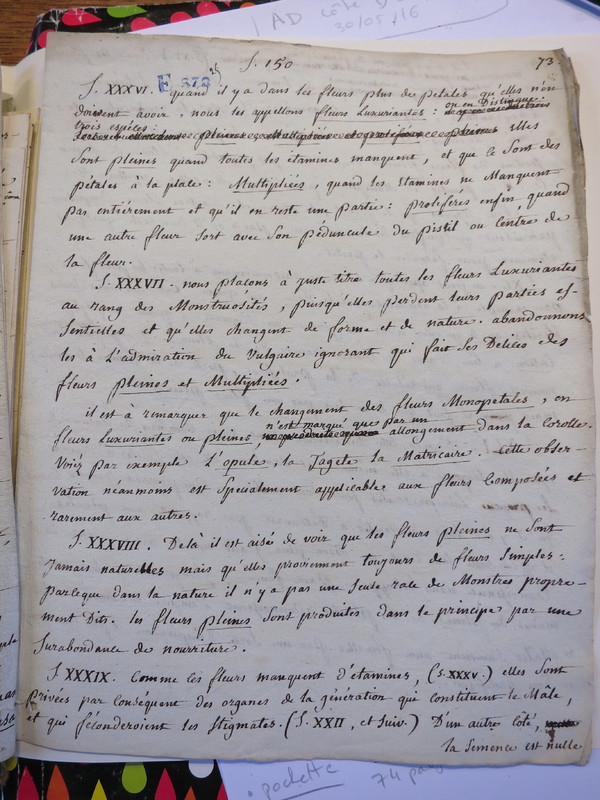 AD côte D
30/05/16
S. 150
73.
S. XXXVI. quand il y a dans les fleurs plus de pétales qu'elles n'en
doivent avoir, nous les appellons fleurs Luxuriantes: on en Distingue
trois espéces: pleines elles
Sont pleines quand toutes les étamines manquent, et que ce Sont des
pétales à la place: Multipliées, quand les Etamines ne Manquent
pas entiérement et qu'il en reste une partie: proliférés enfin quand
une autre fleur sort avec Son péduncule du pistil ou Centre de
la fleur.
S. XXXVII. nous plaçons à juste titre toutes les fleurs Luxuriantes
au rang des Monstruosités, puisqu'elles perdent leurs parties es-
Sentielles et qu'elles changent de forme et de nature. abandonnons
les à L'admiration du Vulgaire ignorant qui fait Ses Delices des
fleurs pleines et Multipliées.
il est à remarquer que le changement des fleurs Monopetales, en
fleurs Luxuriantes ou pleines n'est marqué que par un allongement dans la Corolle.
Voiéz par exemple L'opule, la Tagete la Matricaire. Cette obser-
vation néanmoins est Spécialement applicable aux fleurs Composées et
rarement aux autres.
S. XXXVIII. Delà il est aisé de voir que les fleurs pleines ne Sont
Jamais naturelles mais qu'elles proviennent toujours de fleurs Simples:
parceque dans la nature il n'y a pas une Seule race de Monstres propre-
ment Dits. les fleurs pleines Sont produites dans le principe par une
Surabondance de nourriture.
S XXXIX. Comme ces fleurs manquent d'étamines, (S. XXXV.) elles Sont
privées par Conséquent des organes de la génération qui constituent le Mâle,
et qui féconderoient les Stigmates. (S. XXII, et Suiv.) D'un autre Côté,
la Semence est nulle
. pochette 74 pag